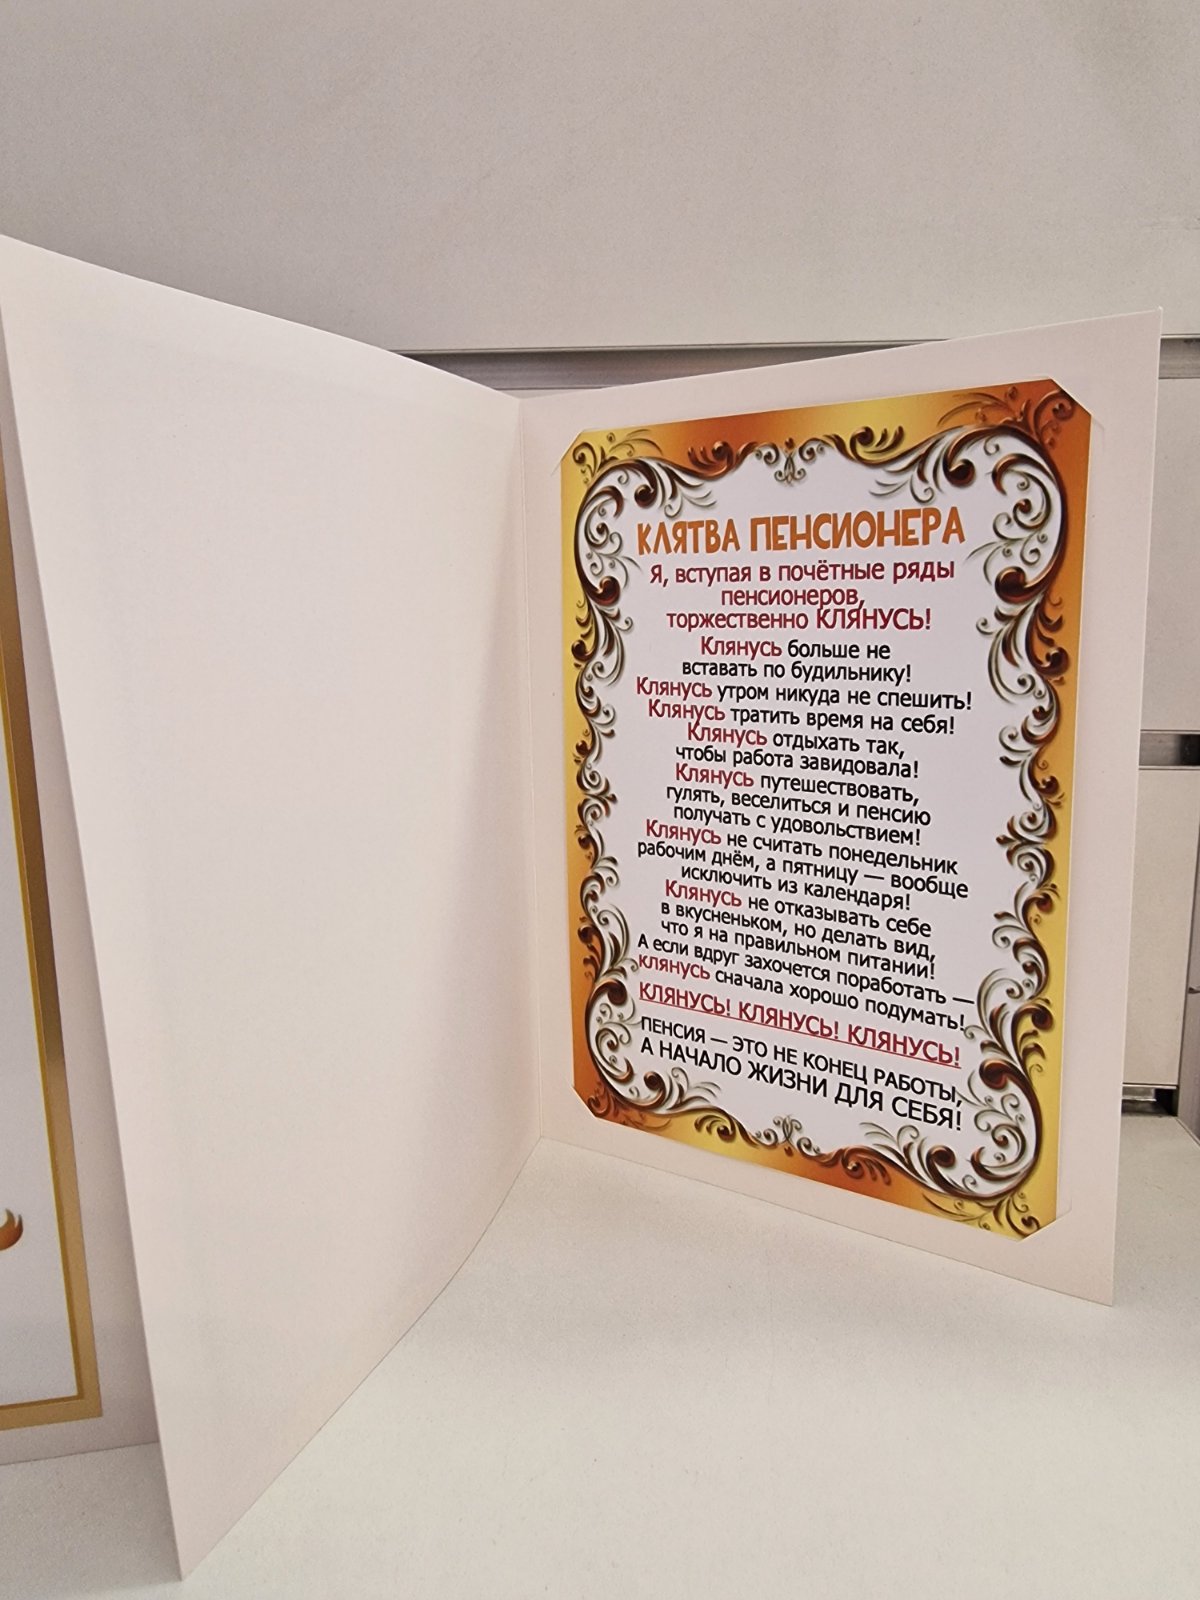 КЛЯТВА ПЕНСИОНЕРА
Я, вступая в почётные ряды
пенсионеров,
торжественно КЛЯНУСЬ!
Клянусь больше не
вставать по будильнику!
Клянусь утром никуда не спешить!
Клянусь тратить время на себя!
Клянусь отдыхать так,
чтобы работа завидовала!
Клянусь путешествовать,
гулять, веселиться и пенсию
получать с удовольствием!
Клянусь не считать понедельник
рабочим днём, а пятницу — вообще
исключить из календаря!
Клянусь не отказывать себе
в вкусненьком, но делать вид,
что я на правильном питании!
А если вдруг захочется поработать —
клянусь сначала хорошо подумать!
КЛЯНУСЬ! КЛЯНУСЬ! КЛЯНУСЬ!
ПЕНСИЯ — ЭТО НЕ КОНЕЦ РАБОТЫ,
А НАЧАЛО ЖИЗНИ ДЛЯ СЕБЯ!